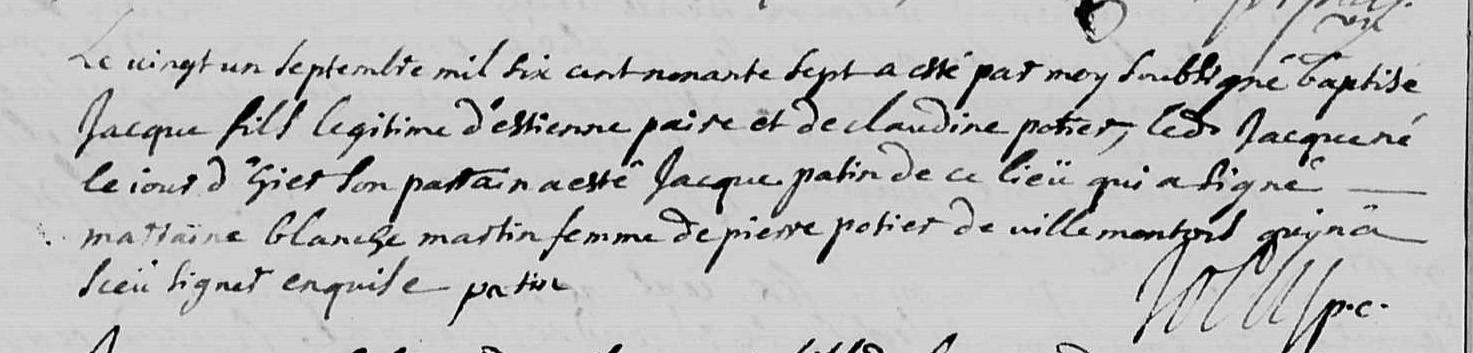 Le vingt un septembre mil six cent nonante sept a esté par moy soubsigné baptisé
Jacque fils legitime d'estienne paire et de claudine potier, led. Jacque né
le iour d'hier son parrain a esté Jacque patin de ce lieü qui a signé
marraine blanche martin femme de pierre potier de villemontois qui n'a
sceü signer enquise patin
p.c.